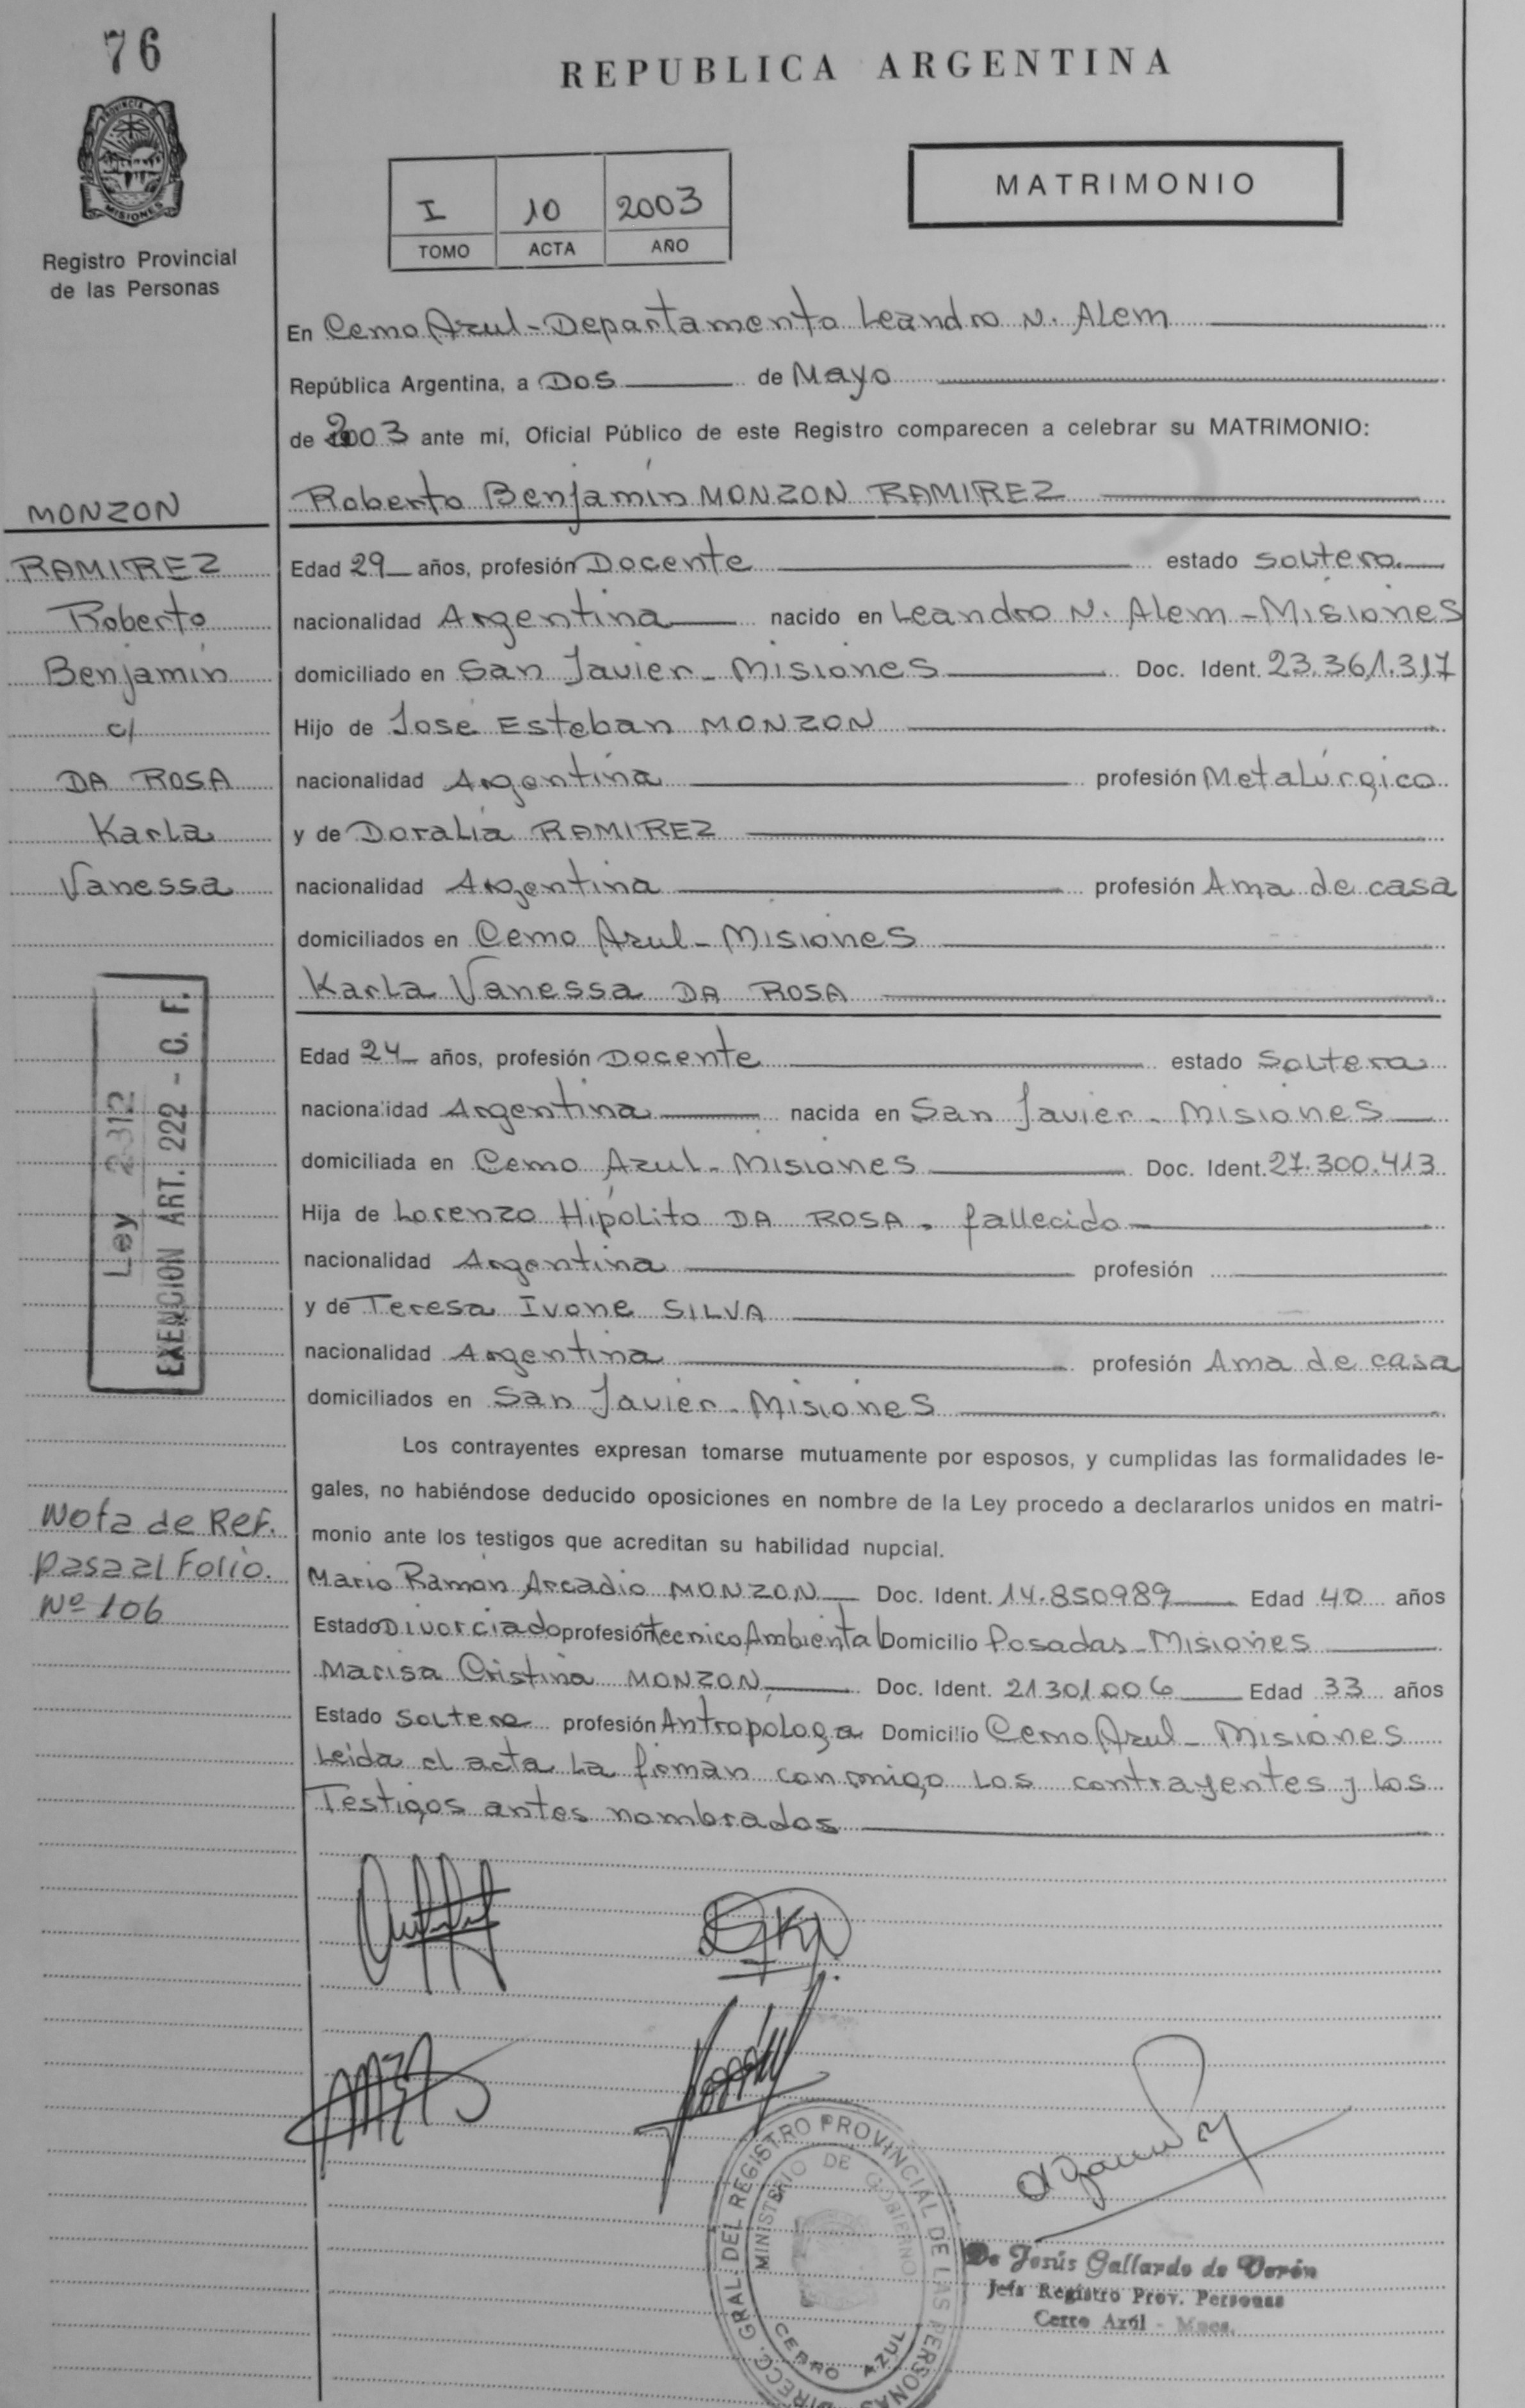 76
REPUBLICA ARGENTINA
PROVINCIA DE
MISIONES
Registro Provincial
de las Personas
I 10 2003
TOMO ACTA AÑO
MATRIMONIO
En Cerro Azul - Departamento Leandro N. Alem
República Argentina, a Dos de Mayo
de 2003 ante mí, Oficial Público de este Registro comparecen a celebrar su MATRIMONIO:
Roberto Benjamín MONZON RAMIREZ
Edad 29 años, profesión Docente estado soltero
nacionalidad Argentina nacido en Leandro N. Alem - Misiones
domiciliado en San Javier - Misiones Doc. Ident. 23.361.317
Hijo de José Esteban MONZON
nacionalidad Argentina profesión Metalúrgico
y de Doralia RAMIREZ
nacionalidad Argentina profesión Ama de casa
domiciliados en Cerro Azul - Misiones
Karla Vanessa DA ROSA
Edad 24 años, profesión Docente estado Soltera
nacionalidad Argentina nacida en San Javier - Misiones
domiciliada en Cerro Azul - Misiones Doc. Ident. 27.300.413
Hija de Lorenzo Hipólito DA ROSA - fallecido
nacionalidad Argentina profesión
y de Teresa Ivone SILVA
nacionalidad Argentina profesión Ama de casa
domiciliados en San Javier - Misiones
Los contrayentes expresan tomarse mutuamente por esposos, y cumplidas las formalidades le-
gales, no habiéndose deducido oposiciones en nombre de la Ley procedo a declararlos unidos en matri-
monio ante los testigos que acreditan su habilidad nupcial.
Mario Ramón Arcadio MONZON Doc. Ident. 14.850989 Edad 40 años
Estado Divorciado profesión Tecnico Ambiental Domicilio Posadas - Misiones
Marisa Cristina MONZON Doc. Ident. 21.301.006 Edad 33 años
Estado soltera profesión Antropologa Domicilio Cerro Azul - Misiones
Leída el acta la firman conmigo los contrayentes y los
Testigos antes nombrados
MONZON
RAMIREZ
Roberto
Benjamín
c/
DA ROSA
Karla
Vanessa
Ley 2312
EXENCION ART. 222 - C. F.
Nota de Ref.
pasa al Folio.
Nº 106
DIRECC. GRAL. DEL REGISTRO PROVINCIAL DE LAS PERSONAS
MINISTERIO DE GOBIERNO
CERRO AZUL
De Jesús Gallardo de Verón
Jefa Registro Prov. Personas
Cerro Azúl - Mnes.